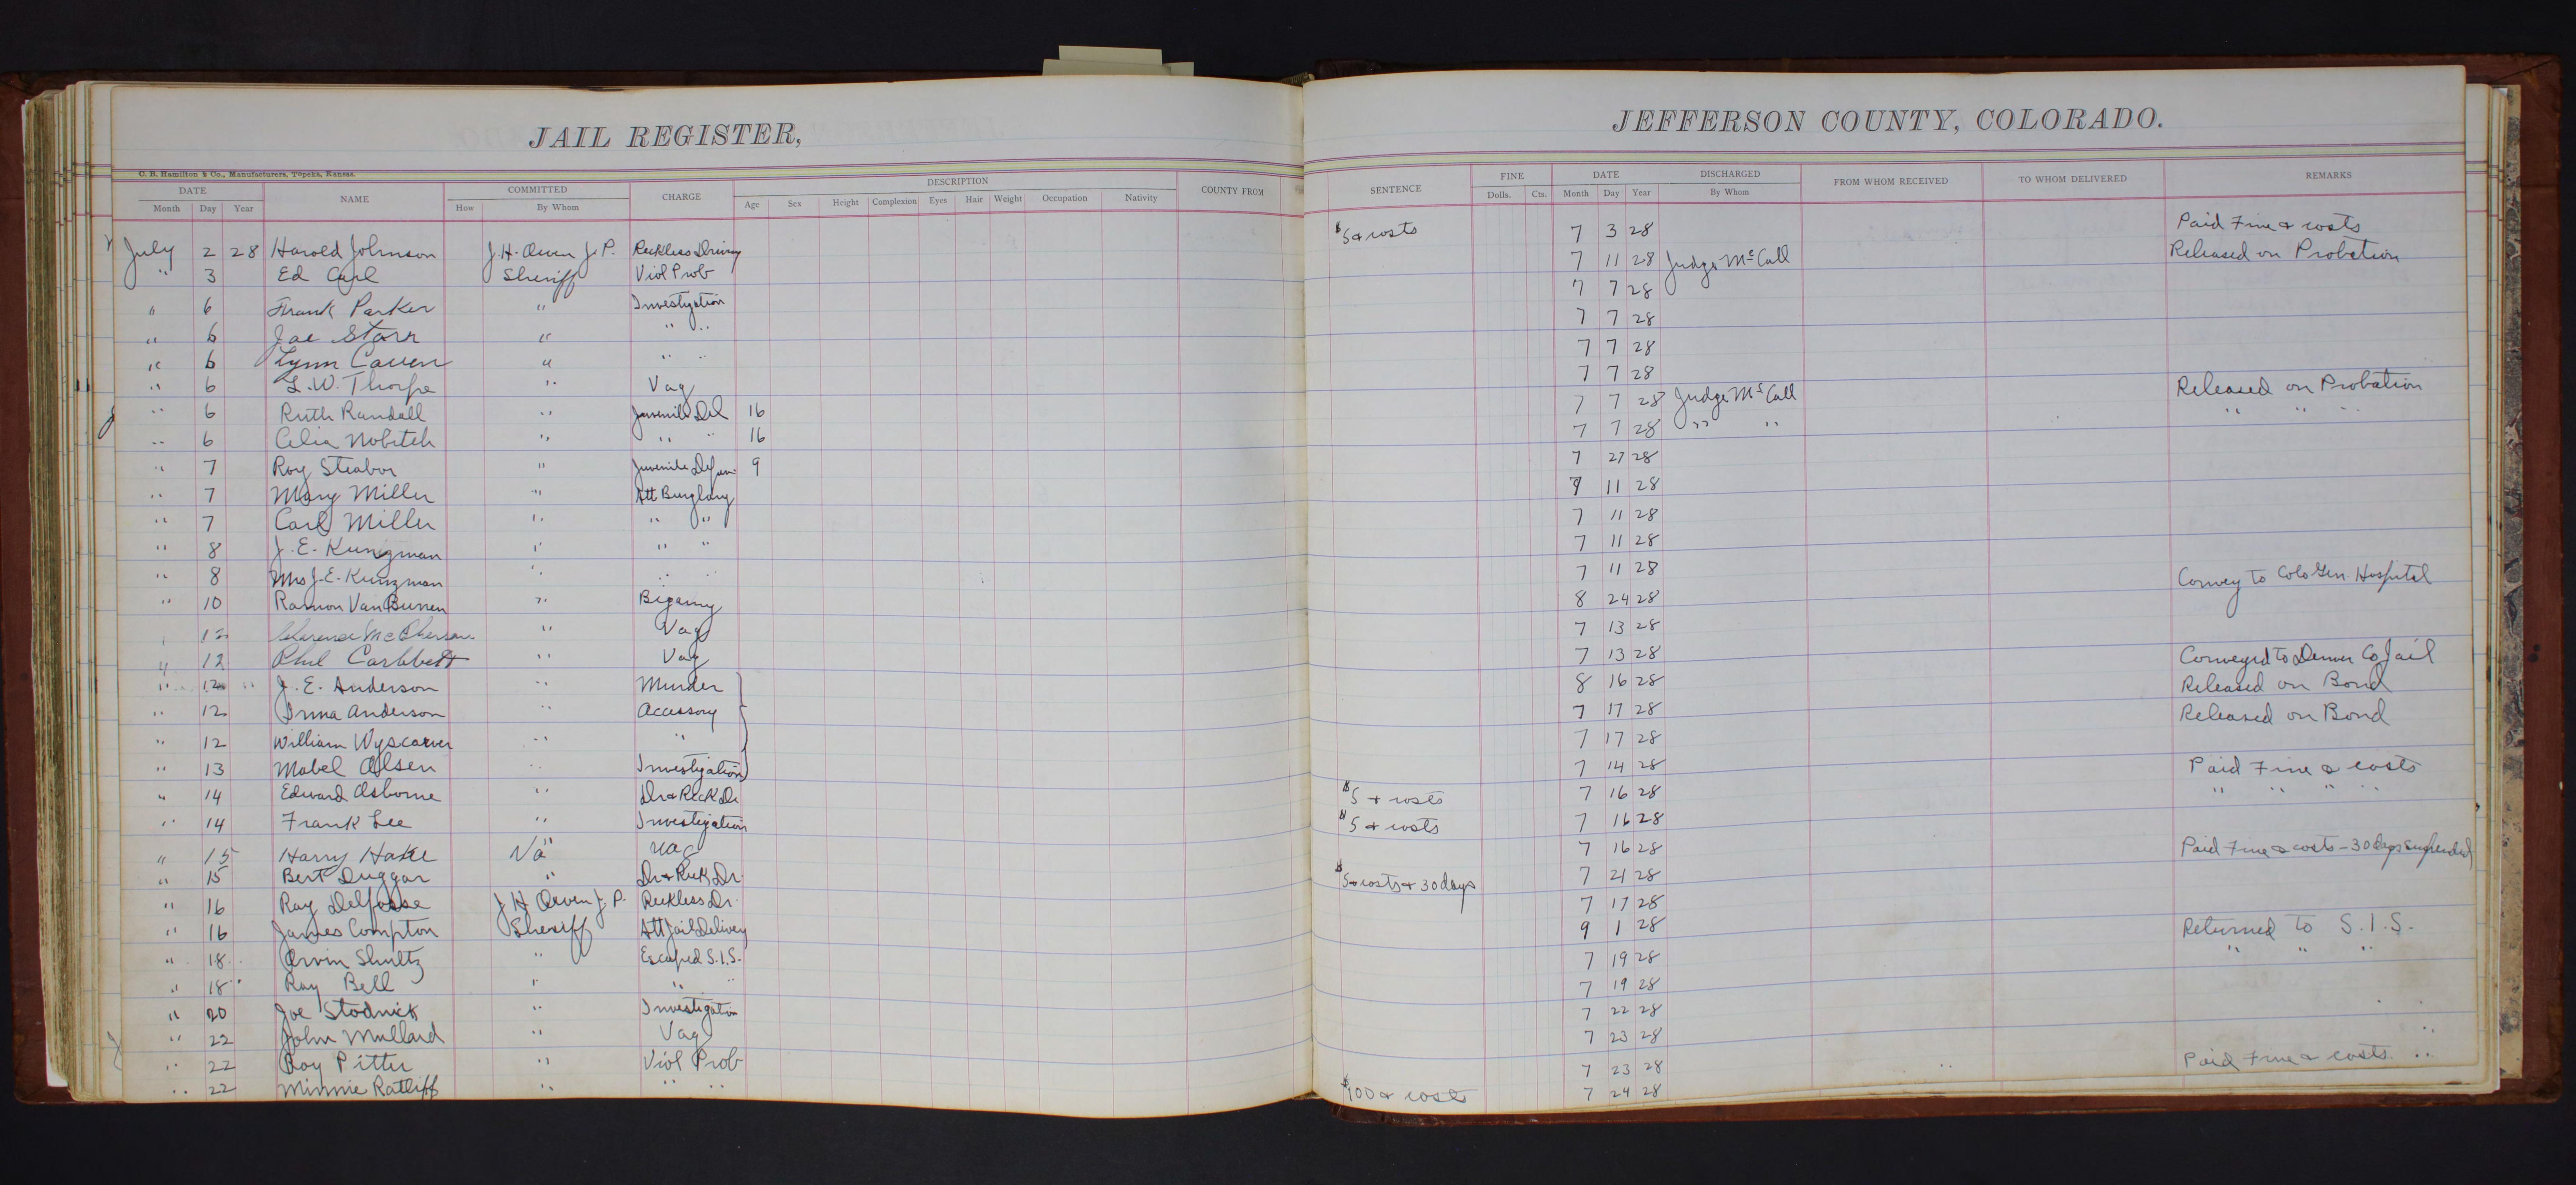 JAIL REGISTER,
C. B. Hamilton & Co., Manufacturers, Topeka, Kansas.
DATE NAME COMMITTED CHARGE DESCRIPTION COUNTY FROM
Month Day Year How By Whom Age Sex Height Complexion Eyes Hair Weight Occupation Nativity
July 2 28 Harold Johnson J. H. Owen J. P. Reckless Driving
" 3 Ed Carl Sheriff Viol Prob
" 6 Frank Parker " Investigation
" 6 Joe Starr " " "
" 6 Lynn Caven " " "
" 6 L. W. Thorpe " Vag
" 6 Ruth Randall " Juvenile Del 16
" 6 Celia Nobitch " " " 16
" 7 Roy Steabor " Juvenile 9
" 7 Mary Miller " Att Burglary
" 7 Carl Miller " " "
" 8 J. E. Kunzman " " "
" 8 Mrs J. E. Kunzman " " "
" 10 Ramon Van Buren " Bigamy
" 12 Clarence McPherson " Vag
" 12 Phil " Vag
" 12 " J. E. Anderson " Murder
" 12 Irma Anderson " Accessory
" 12 William Wyscarver " "
" 13 Mabel Olsen " Investigation
" 14 Edward Osborne " Dr & Reck Dr
" 14 Frank Lee " Investigation
" 15 Harry Hake " Vag
" 15 Bert Duggar " Dr & Reck Dr.
" 16 Ray Delfosse J H Owen J. P. Reckless Dr.
" 16 James Compton Sheriff Att Jail Delivery
" 18 Orvin Shultz " Escaped S.I.S.
" 18 " Ray Bell " " "
" 20 Joe Stodnick " Investigation
" 22 John Mullard " Vag
" 22 Roy Pitter " Viol Prob
" 22 Minnie Ratliff " " "
JEFFERSON COUNTY, COLORADO.
SENTENCE FINE DATE DISCHARGED FROM WHOM RECEIVED TO WHOM DELIVERED REMARKS
Dolls. Cts. Month Day Year By Whom
$5 & costs 7 3 28 Paid Fine & costs
7 11 28 Judge McCall Released on Probation
7 7 28
7 7 28
7 7 28
7 7 28
7 7 28 Judge McCall Released on Probation
7 7 28 " " " " "
7 27 28
7 11 28
7 11 28
7 11 28
7 11 28 Convey to Colo Gen. Hospital
8 24 28
7 13 28
7 13 28 Conveyed to Denver Co Jail
8 16 28 Released on Bond
7 17 28 Released on Bond
7 17 28
7 14 28 Paid Fine & costs
$5 & costs 7 16 28 " " " "
$5 & costs 7 16 28
7 16 28 Paid Fine & costs - 30 days suspended
$5 & costs & 30 days 7 21 28
7 17 28
9 1 28 Returned to S.I.S.
7 19 28 " " "
7 19 28
7 22 28
7 23 28
7 23 28 Paid Fine & costs
$100 & costs 7 24 28